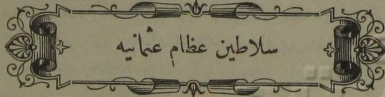 سلاطين عظام عثمانيه